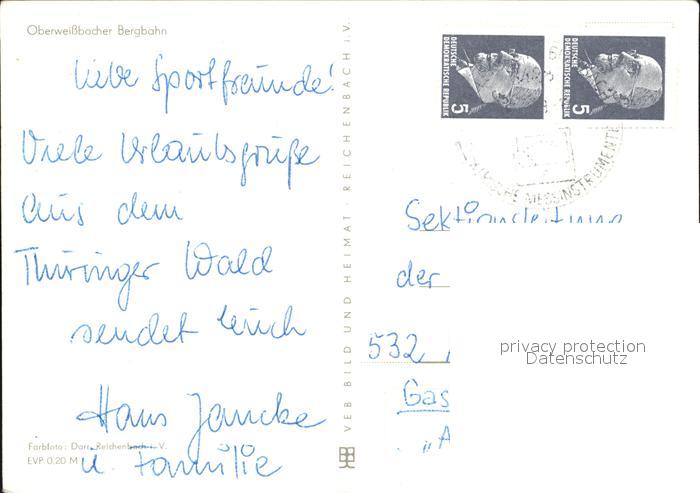 Oberweißbacher Bergbahn
Liebe Sportfreunde!
Viele Urlaubsgrüße
aus dem
Thüringer Wald
sendet Euch
Hans Jancke
u. Familie
Farbfoto: Darr, Reichenbach i. V.
EVP 0.20 M
VEB BILD UND HEIMAT · REICHENBACH i.V.
DEUTSCHE
DEMOKRATISCHE REPUBLIK
5
DEUTSCHE
DEMOKRATISCHE REPUBLIK
5
MESSINSTRUMENTE
Sektionsleitung
der
532
Gas
„A
privacy protection
Datenschutz